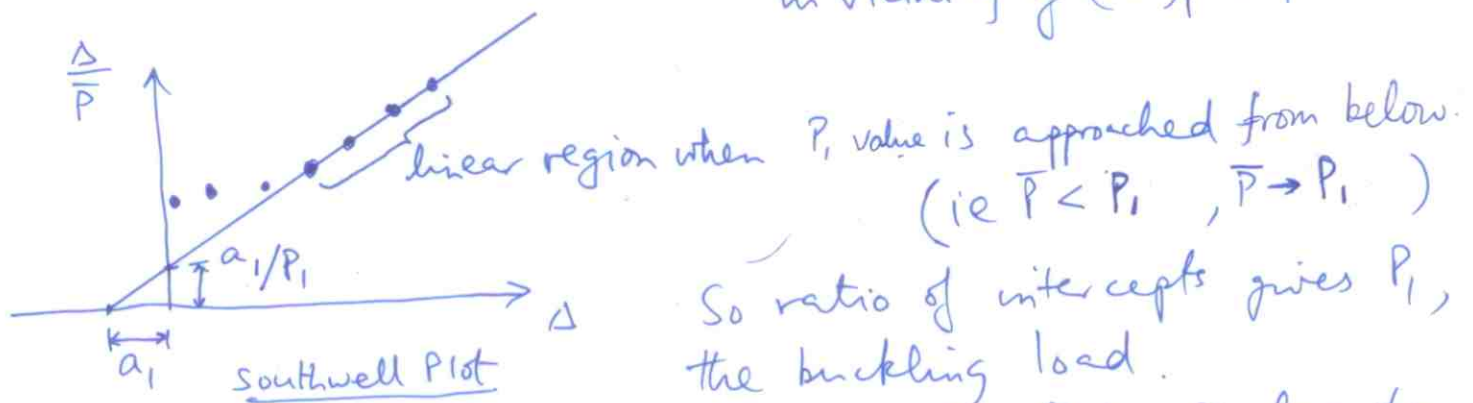 Δ
P̅
linear region when P₁ value is approached from below.
(ie P̅ < P₁ , P̅ → P₁ )
a₁/P₁
So ratio of intercepts gives P₁,
Δ
a₁
the buckling load.
Southwell Plot